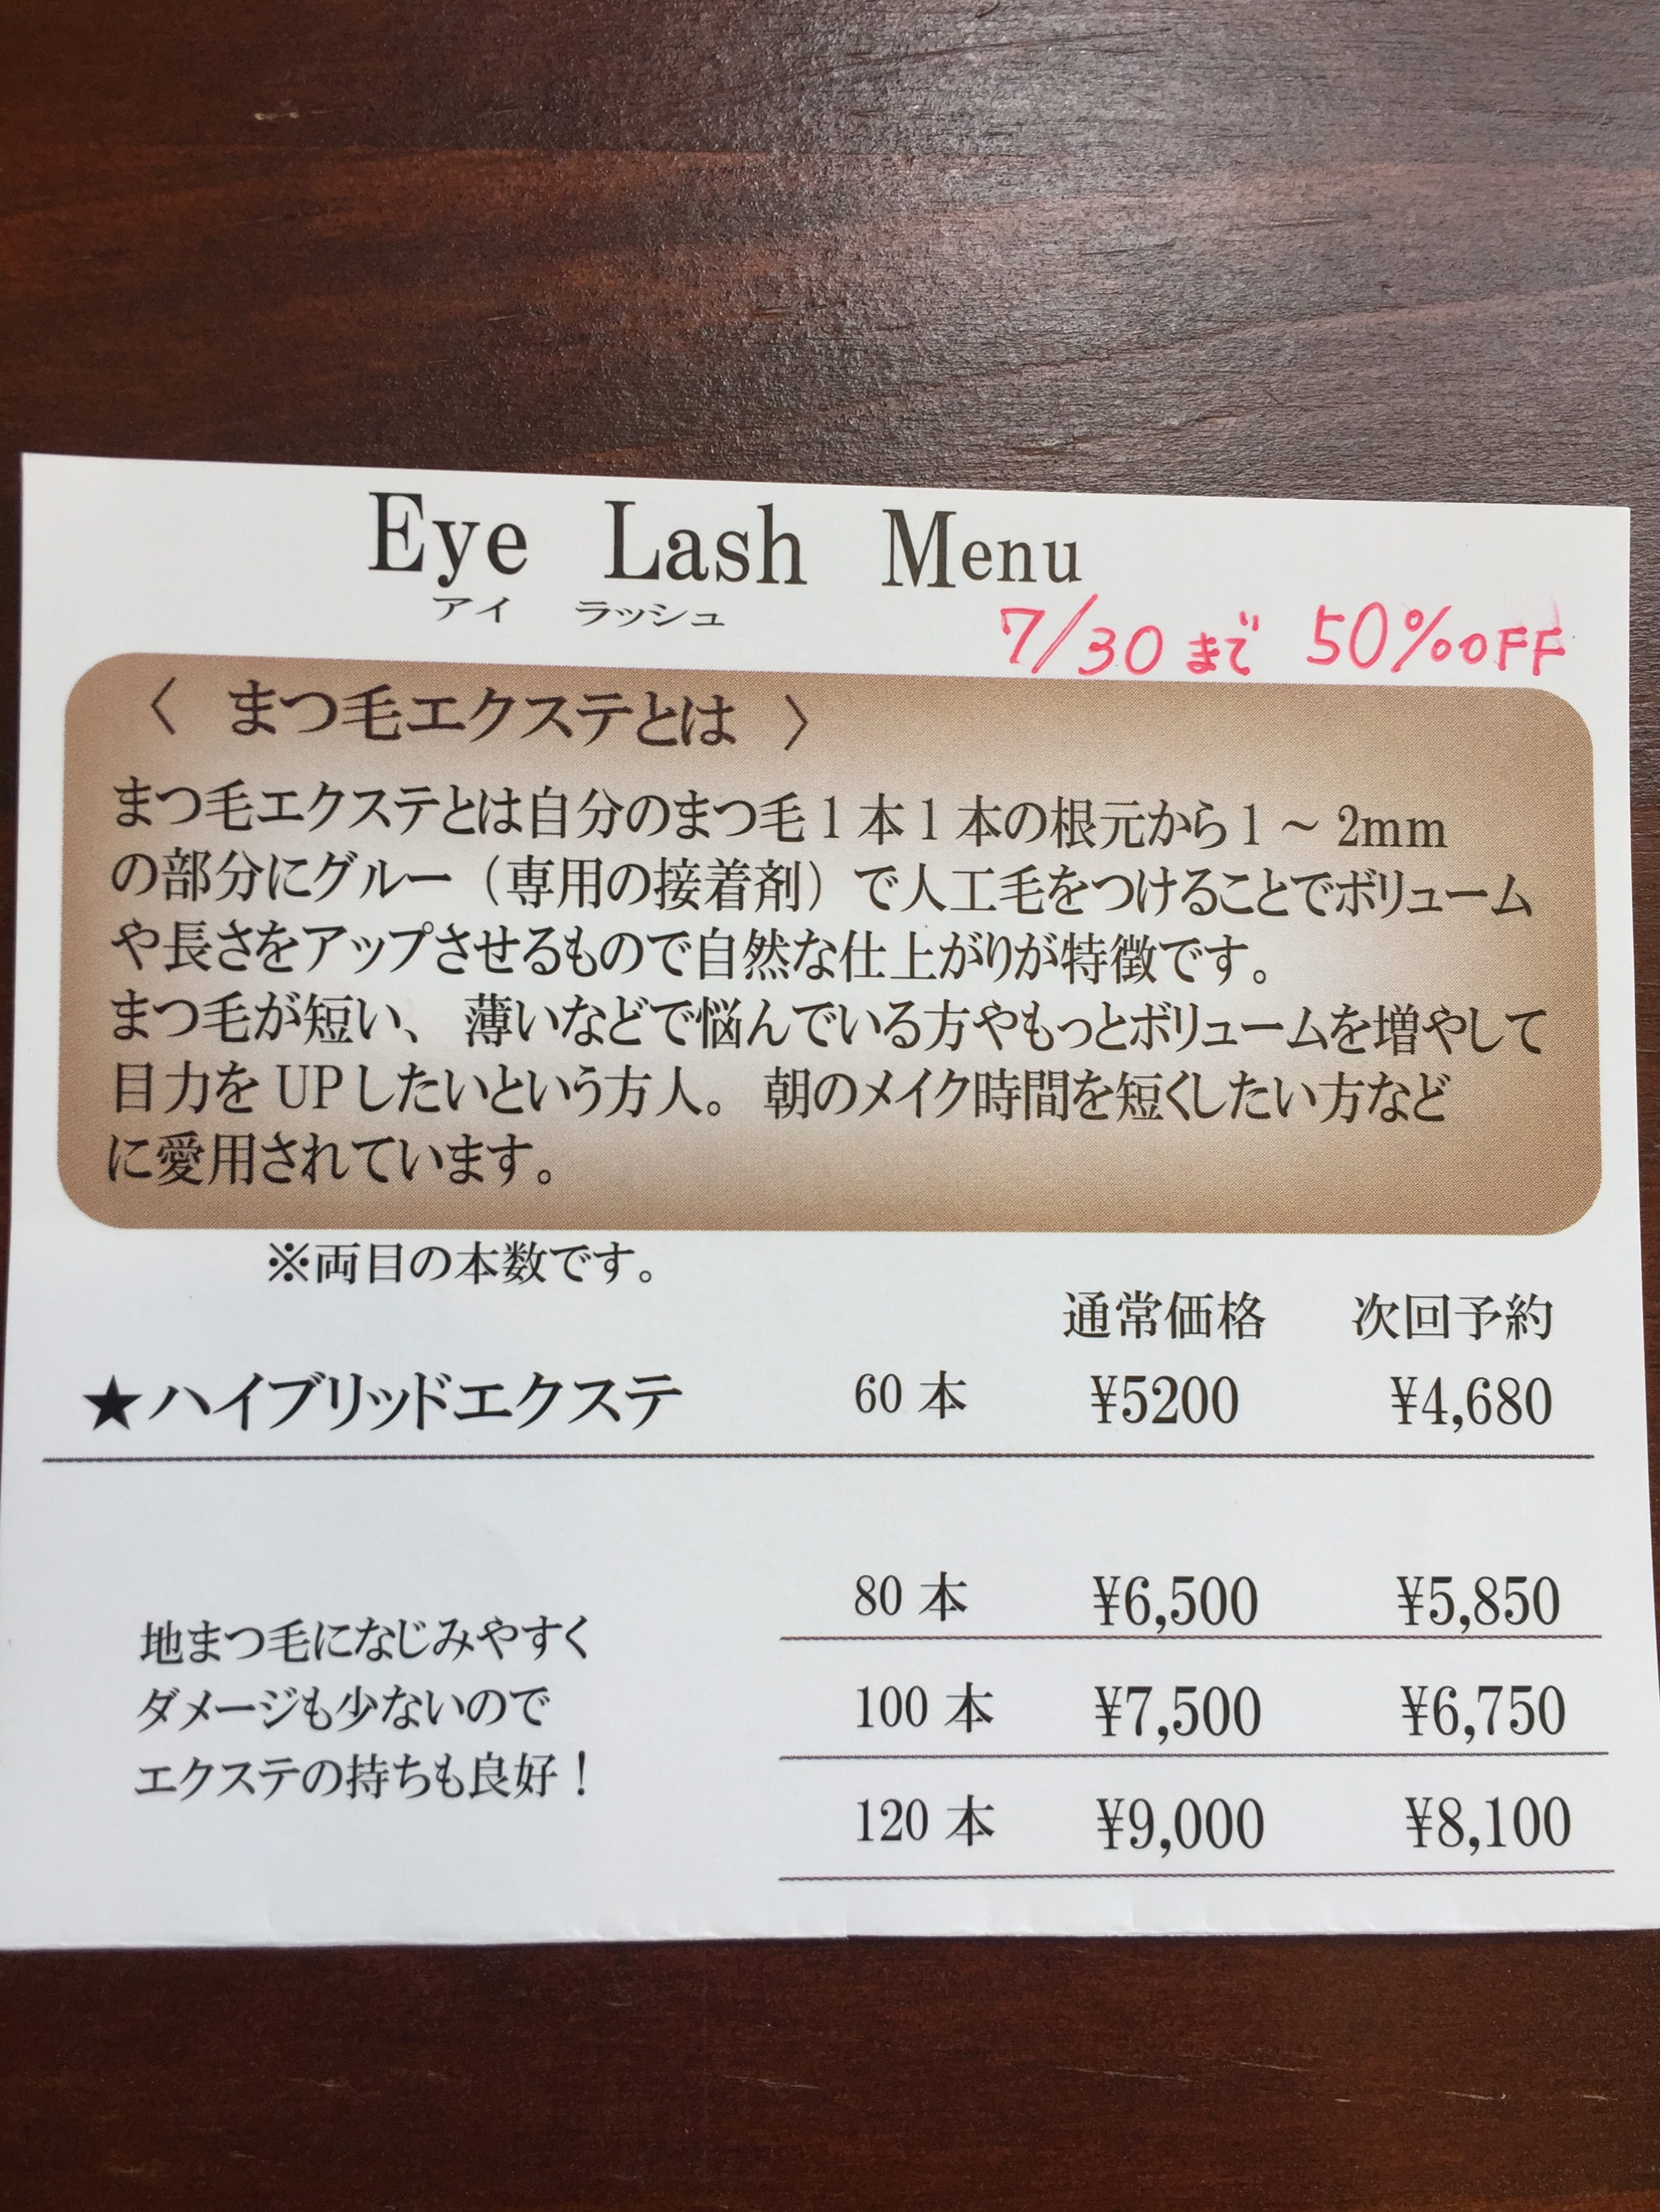 Eye Lash Menu
アイ ラッシュ
7/30 まで 50%OFF
〈 まつ毛エクステとは 〉
まつ毛エクステとは自分のまつ毛1本1本の根元から1～2mm
の部分にグルー（専用の接着剤）で人工毛をつけることでボリューム
や長さをアップさせるもので自然な仕上がりが特徴です。
まつ毛が短い、薄いなどで悩んでいる方やもっとボリュームを増やして
目力をUPしたいという方人。朝のメイク時間を短くしたい方など
に愛用されています。
※両目の本数です。
通常価格 次回予約
★ハイブリッドエクステ 60本 ¥5200 ¥4,680
80本 ¥6,500 ¥5,850
地まつ毛になじみやすく
ダメージも少ないので
100本 ¥7,500 ¥6,750
エクステの持ちも良好！
120本 ¥9,000 ¥8,100